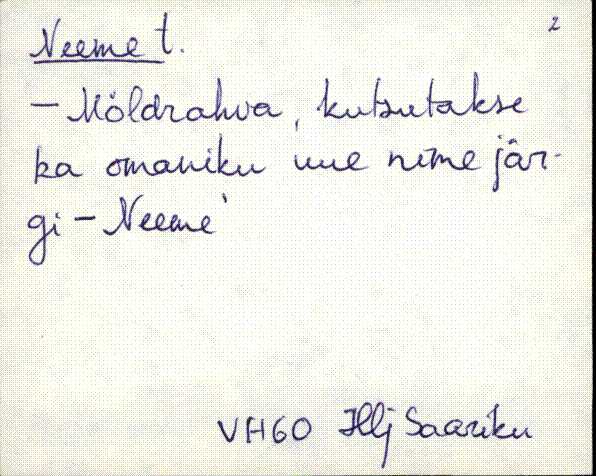 2
Neeme t.
– Möldrahva, kutsutakse
ka omaniku uue nime jär-
gi – Neeme'
VH60 Hlj Saariku